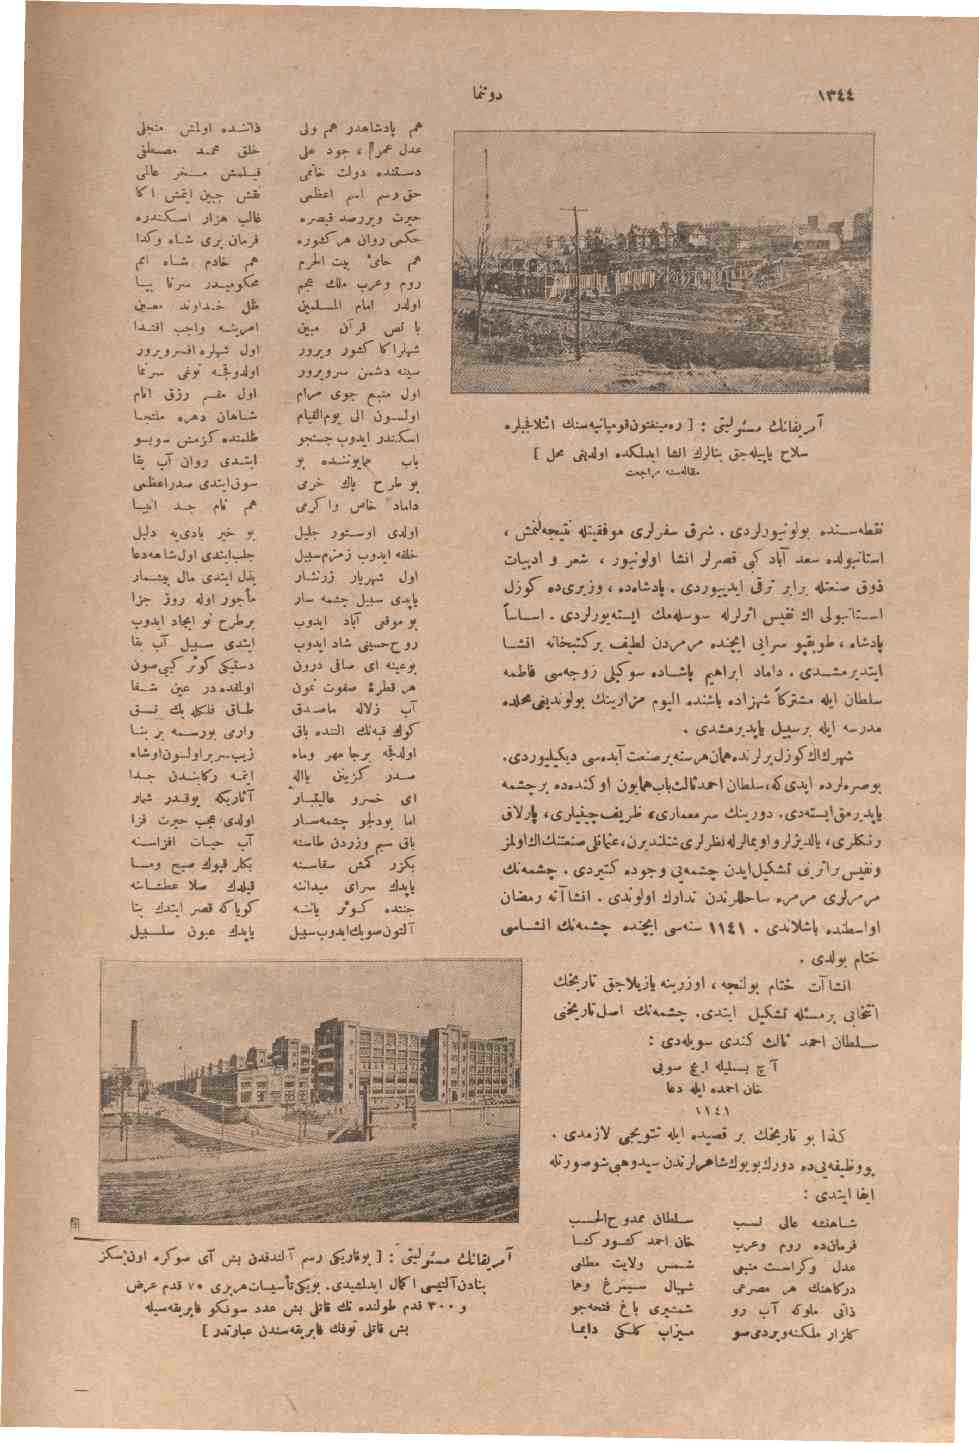 ١٣٤٤
دوننما
آمریقانك مسئولیتی : [ ره‌مینغتون قومپانیه‌سنك ائتلافجیلره
سلاح یاپیله‌جق بنالرك انشا ایدلمکده اولدیغی محل ]
مقاله‌سنه مراجعت
نقطه‌سنده بولونیورلردی . شرق سفرلری موفقیتله نتیجه‌لنمش ،
استانبولده سعد آباد کبی قصرلر انشا اولونیور ، شعر و ادبیات
ذوق صنعتله برابر ترقی ایدییوردی . پادشاه‌ده ، وزیری‌ده کوزل
استانبولی اك نفیس اثرلرله سوسله‌مك ایسته‌یورلردی . اساساً
پادشاه ، طوپقپو سرایی ایچنده مرمردن لطیف بر کتبخانه انشا
ایتدیرمشدی . داماد ابراهیم پاشاده سوکیلی زوجه‌سی فاطمه
سلطان ایله مشترکاً شهزاده باشنده الیوم مزارینك بولوندیغی محلده
مدرسه ایله برسبیل یاپدیرمشدی .
شهرك اك کوزل یرلرنده همان هرسنه برصنعت آبده‌سی دیکیلیوردی.
بوصره‌لرده ایدی که، سلطان احمد ثالث باب همایون اوکنده‌ده برچشمه
یاپدیرمق ایسته‌دی. دورینك سر معماری، ظریف چینیلری، پارلاق
رنکلری، یالدیزلر و اویمالرله نظرلری شنلندیرن، عثمانلی صنعتنك اك اولمز
ونفیس براثرینی تشکیل ایدن چشمه‌یی وجوده کتیردی . چشمه‌نك
مرمرلری مرمره ساحللرندن تدارك اولوندی . انشاآته رمضان
اواسطنده باشلاندی . ١١٤١ سنه‌سی ایچنده چشمه‌نك انشاسی
ختام بولدی .
انشاآت ختام بولنجه ، اوزرینه یازیلاجق تاریخك
انتخابی بر مسئله تشکیل ایتدی. چشمه‌نك اصل تاریخنی
سلطان احمد ثالث کندی سویله‌دی :
آچ بسمله‌یله ایچ صویی
خان احمده ایله دعا
١١٤١
کذا بو تاریخك بر قصیده ایله تتویجی لازمدی .
بووظیفه‌یی‌ده دورك بویوك شاعرلرندن سیدوهبی شوصورتله
ایفا ایتدی :
شاهنشه عالی نسب سلطان ممدوح الحسب
فرمانده روم وعرب خان احمد کشور کشا
عدل وکراست منبعی شمس ولایت مطلعی
درکاهنك هر مصرعی شهبال سیمرغ وهما
ذاتی ملوکه آب رو شمشیری باغ فتحه جو
کلزار ملکنه ویردی صو میزاب کلکی دایما
هم پادشاهدر هم ولی ذاتنده اولمش منجلی
عدل عمر ، جود علی خلق محمد مصطفی
دستنده دولت خاتمی قیلمش مسخر عالمی
حق رسم اسم اعظمی نقش جبین ایتمش اکا
حیرت ویررصد قیصره غالب هزار اسکندره
حکمی روان هرکشوره فرمان بری شاه وکدا
هم حامیٔ بیت الحرم هم خادم شاه امم
روم وعرب ملك عجم محکومیدر سرتا بپا
اولدر امام المسلمین ظل خداوند معین
با نص قرآن مبین امرینه واجب اقتدا
شهلراکا کشور ویرور اول شهلره افسر ویرور
سینه دشمن سرویرور اولدوقجه توغی سرنما
اول منبع جوی مرام اول مقسم رزق انام
اولسون الی یوم القیام شاهان دهره ملتجا
اسکندر ایدوب جستجو ظلمتده کزمش سوبسو
باب همایوننده بو ایتدی روان آب بقا
بو طرح پاك خرمی سوق ایتدی صدراعظمی
داماد خاص واکرمی هم نام جد انبیا
اولدی اوستور جلیل بو خیر بادی‌یه دلیل
خلقه ایدوب زمزم سبیل جلب ایتدی اول شاهه دعا
اول شهریار زرنشار بذل ایتدی مال بیشمار
یاپدی سبیل چشمه سار مأجور اوله روز جزا
بو موقعی آباد ایدوب برطرح نو ایجاد ایدوب
روح حسینی شاد ایدوب ایتدی سبیل آب بقا
بوعینه ای صافی درون دستیکی کوثر کبی صون
هر قطرهٔ صفوت نمون اولمقده‌در عین شفا
آب زلاله ماصدق طاق فلکله یك نسق
كوك قبه‌نك التنده باق وارمی بورسمه بر بنا
اولدقجه برجا مهر وماه زیب سریر اولسون اوشاه
صدر کزینن یااله ایتمه رکابندن جدا
ای خسرو عالیتبار آثاریکه یوقدر شمار
اما بودلجو چشمه‌سار اولدی عجب حیرت فزا
باق سیم وزردن طاسنه آب حیات افزاسنه
بکزر کمش سقاسنه بکلر قپوك صبح ومسا
یاپدك سرای میداننه قیلدك صلا عطشانه
جنتده کوثر یاننه کویاکه قصر ایتدك بنا
آلتون صویك ایدوب سبیل یاپدك عیون سلسبیل
آمریقانك مسئولیتی : [ یوقاریکی رسم آلندقدن بش آی سوکره اون‌سکز
بنادن آلتیسی اکمال ایدلمشیدی. بویکی تأسیسات هربری ٧٠ قدم عرض
و ٣٠٠ قدم طولنده تك قاتلی بش عدد سونکو فابریقه‌سیله
بش قاتلی توفك فابریقه‌سندن عبارتدر ]